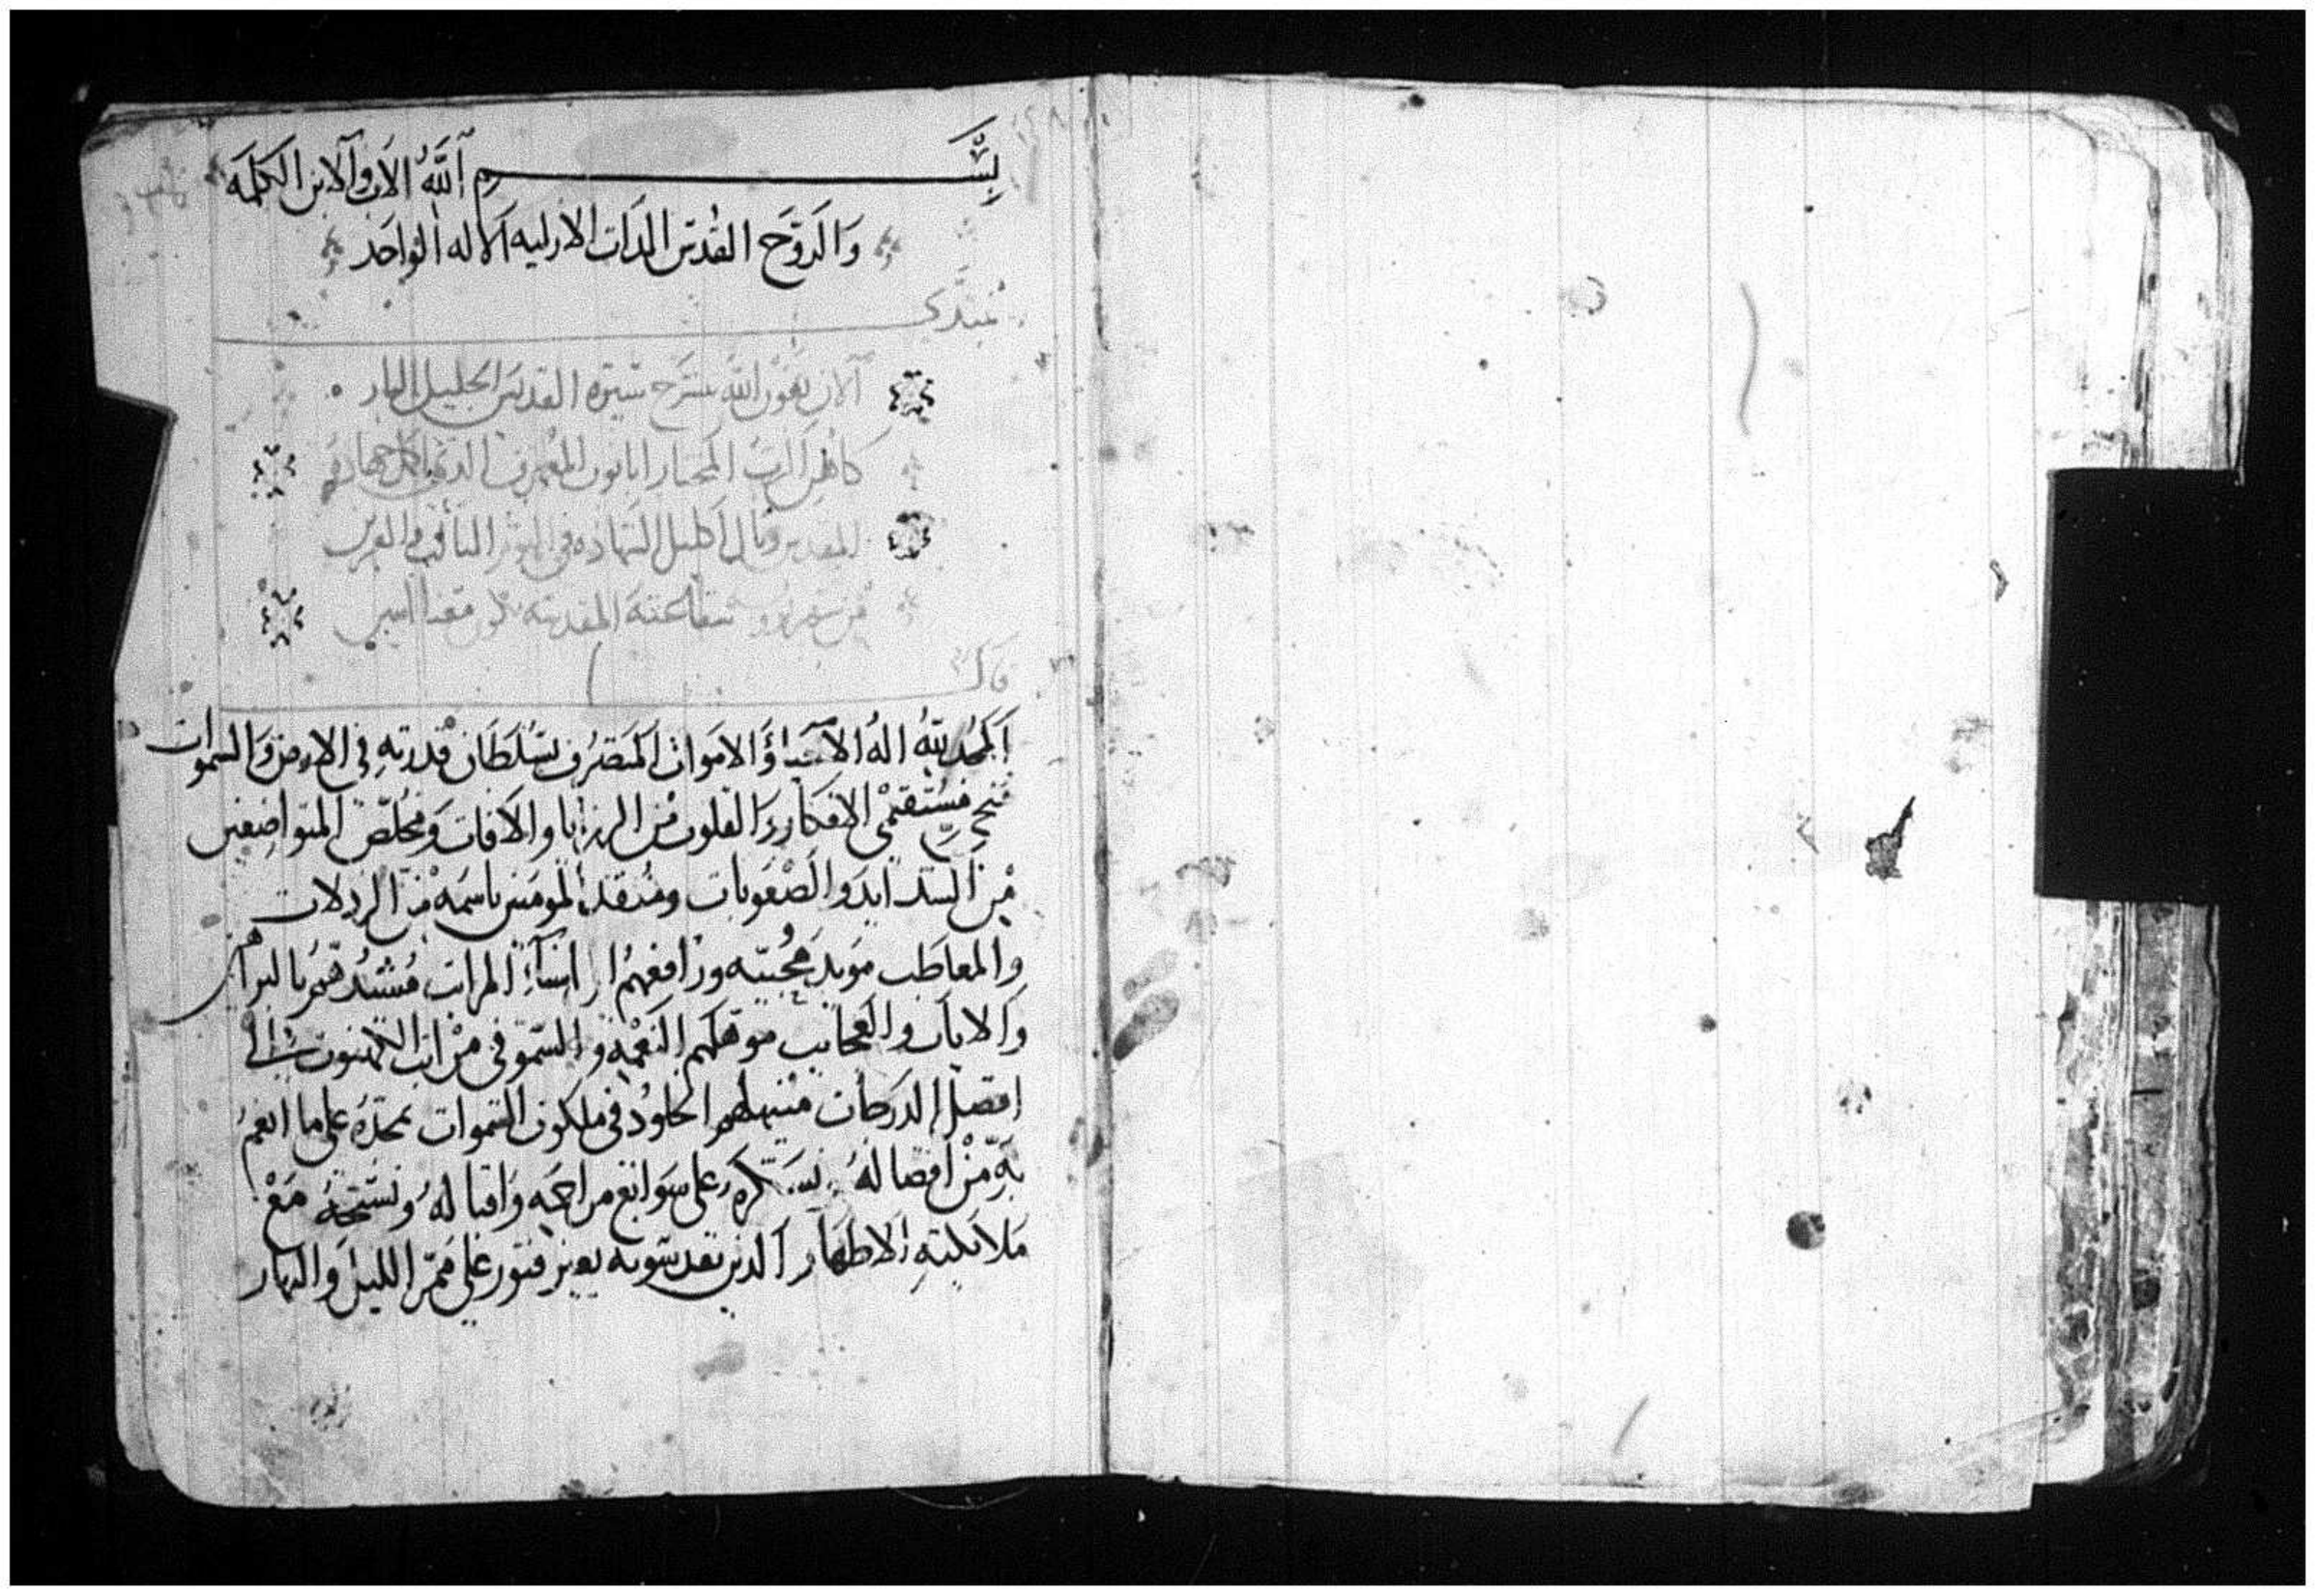 بِسْم اَللَّهُ الاَب وَالابن الكلمَه
وَالرَوَّح القدس الدَات الازليه الاله الوَاحَد
نبتدي
الان بعَون الله بشرح سيرة القديس الجليل البار
كاهن الرب المختار ابا نوب المعترف الدي جهاده
المقدس ونال اكليل الشهاده في اليوم الثالث والعشرين
من شهر شفاعته المقدسه تكون معنا امين
قال
اَلحَمُد للهُ الهُ الاَحَيَا وَالامَوات اَلمَتصَرُف بسُلطَان قدرَتهِ في الارض وَالسموات
مُنجى مُستقيمَى الافكار وَالقلوب مَن الرزَايا والافات وَمُخلّص المتواضعين
مْن الشدَايدَ وَالصْعَوبات ومُنقد المومَنين باسمَهْ مْن الزلات
والمعاطب مَويد مُحبيَه ورَافعهمُ الي اسناءِ المراتب مُشيدُهَمُ بالبراهين
وَالايَات والعَجَايب موَهلهم النعْمَه والسموَ في مرَاتب الكهنوت الى
افضل الدرَجات منيلهم الخلودْ في ملكوت السَموات نحمَدهُ على ما انعَمُ
بهِ مْنْ افضالهُ ونشكرهَ على سوَابغ مراحمَه وَاقبالهُ وَنسَبحَهُ مَعْ
مَلايكتهِ الاطهَار الدين يقدسَونه بغير فتور على مَمَر الليل وَالنهار